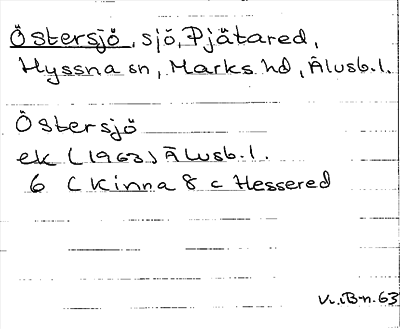 Östersjö, sjö, Pjätared,
Hyssna sn, Marks hd, Älvsb. l.
Östersjö
ek (1963) Älvsb. l.
6 (Kinna 8 c Hessered
V. iB-n. 63